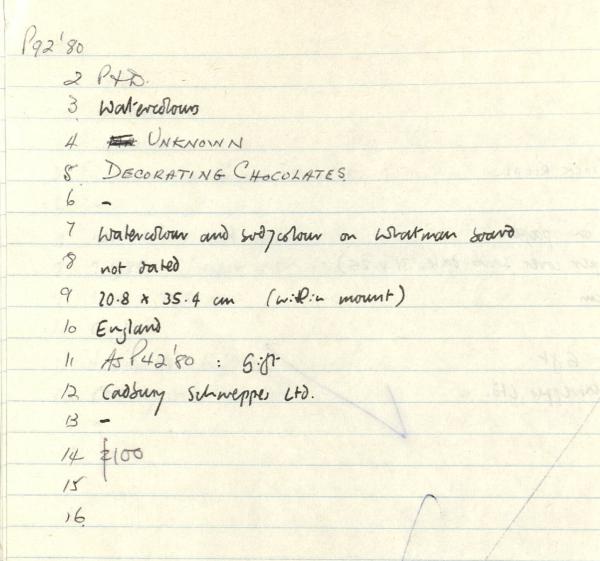 P92'80
2 P & D.
3 Watercolours
4 UNKNOWN
5 DECORATING CHOCOLATES
6 -
7 Watercolour and bodycolour on Whatman board
8 not dated
9 20.8 x 35.4 cm (within mount)
10 England
11 As P42'80 : Gift
12 Cadbury Schweppes Ltd.
13 -
14 £100
15
16